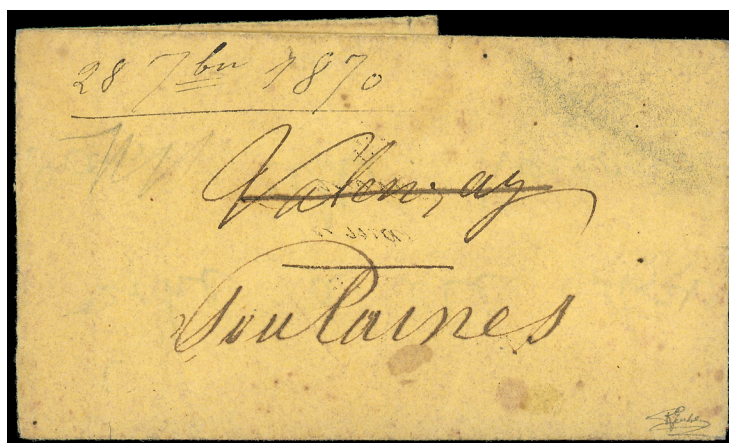 28 7bre 1870
Valençay
Soulaines